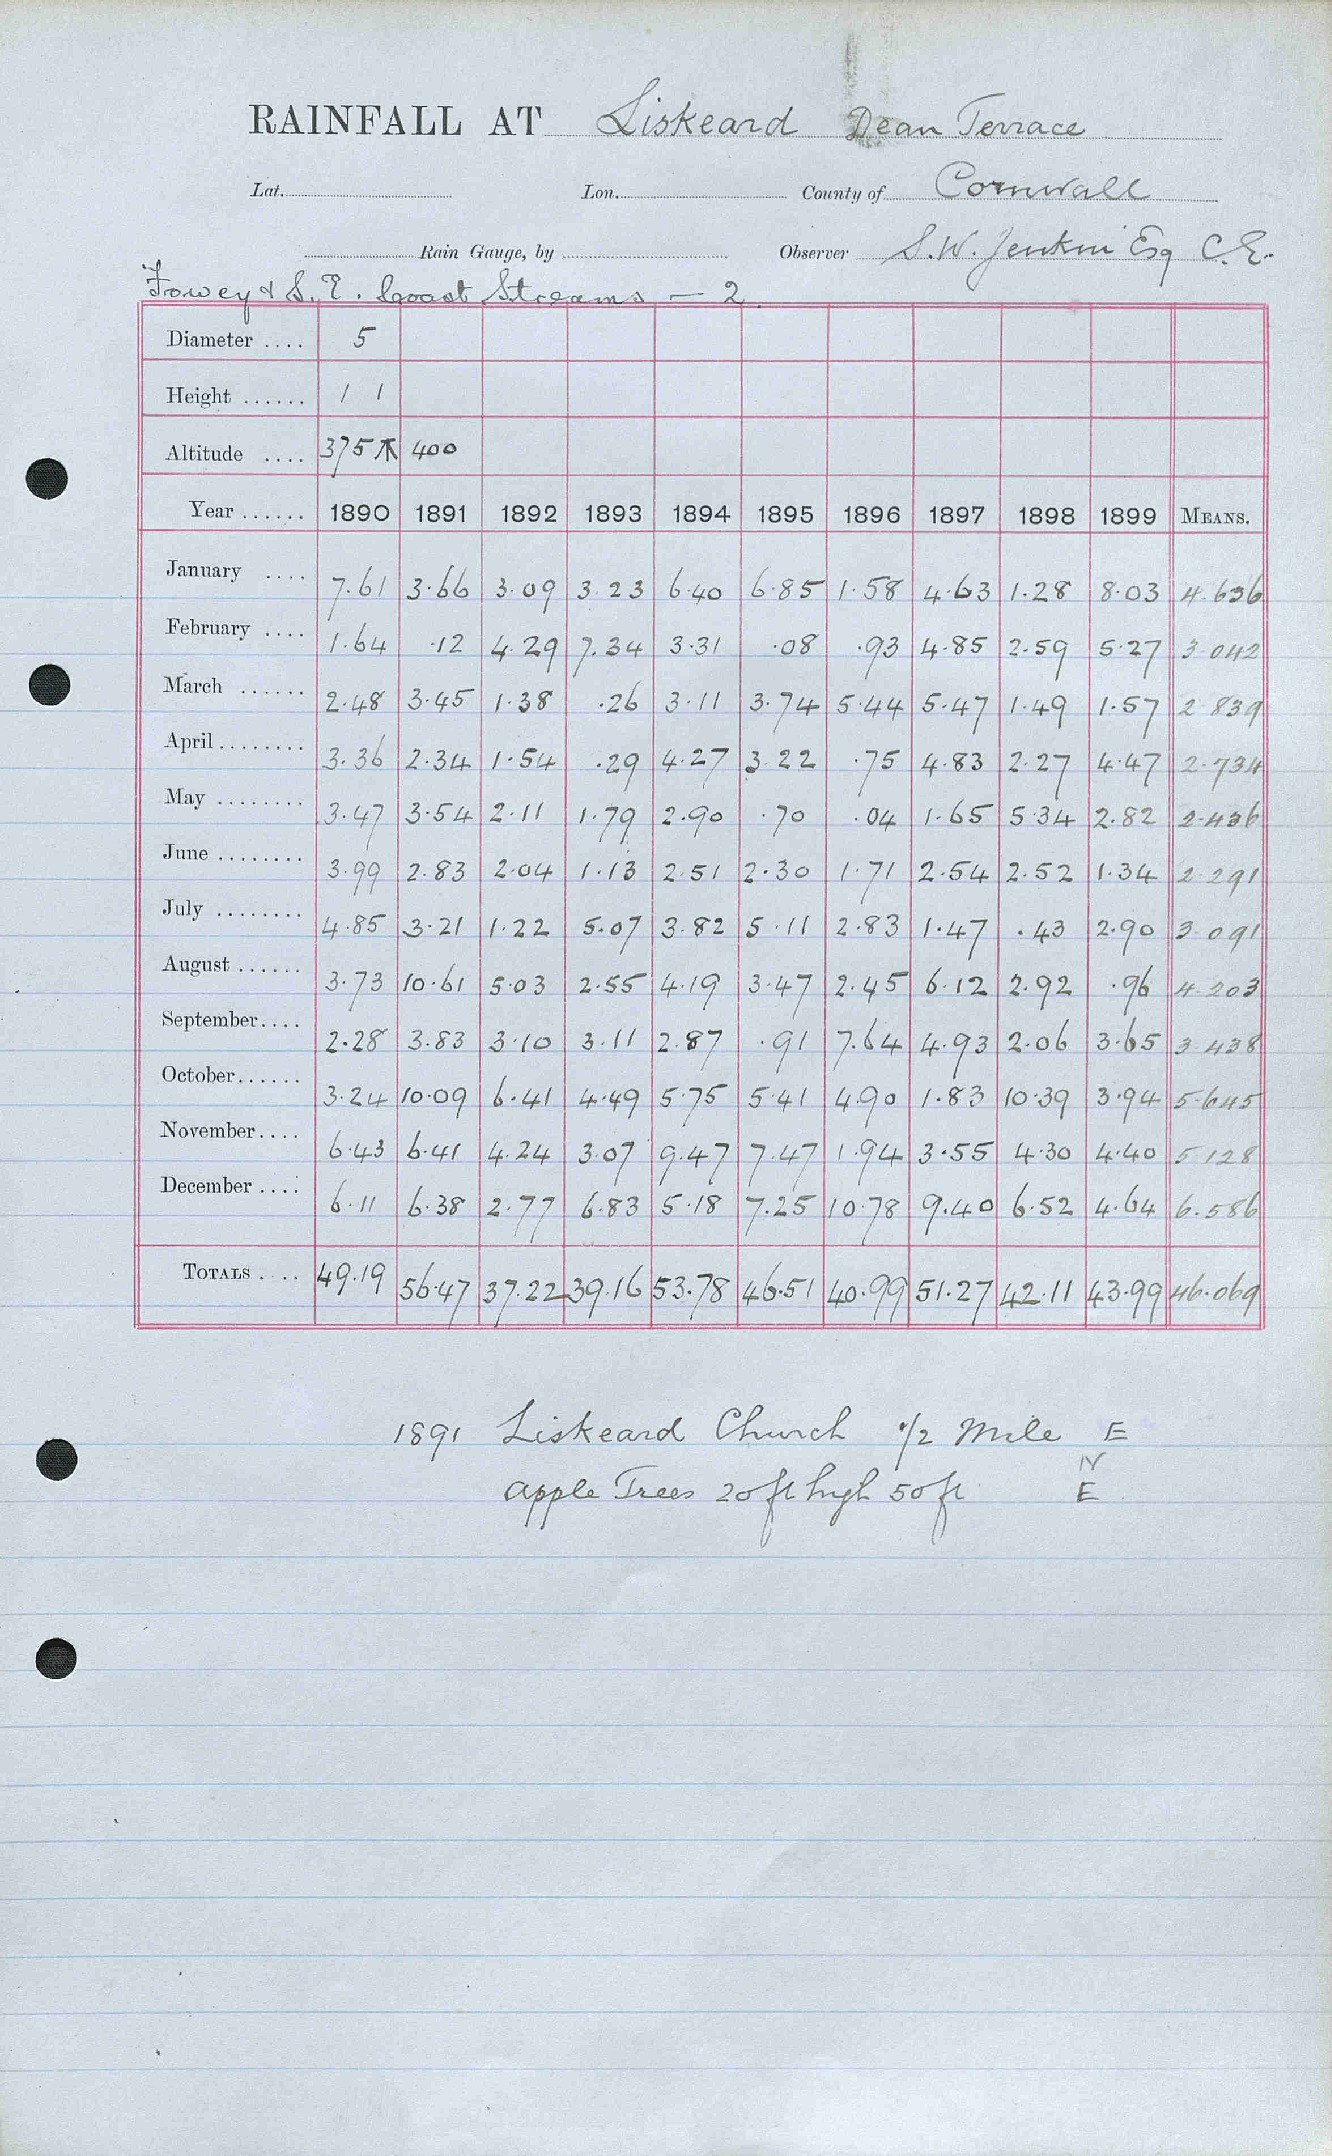 RAINFALL AT Liskeard Dean Terrace
Lat. Lon. County of Cornwall
Rain Gauge, by Observer S. W. Jenkin Esq C.E.
Fowey & S. E. Coast Streams — 2
Diameter .... 5
Height ...... 1 1
Altitude .... 375 400
Year ...... 1890 1891 1892 1893 1894 1895 1896 1897 1898 1899 MEANS.
January .... 7.61 3.66 3.09 3.23 6.40 6.85 1.58 4.63 1.28 8.03 4.636
February .... 1.64 .12 4.29 7.34 3.31 .08 .93 4.85 2.59 5.27 3.042
March ...... 2.48 3.45 1.38 .26 3.11 3.74 5.44 5.47 1.49 1.57 2.839
April ........ 3.36 2.34 1.54 .29 4.27 3.22 .75 4.83 2.27 4.47 2.734
May ........ 3.47 3.54 2.11 1.79 2.90 .70 .04 1.65 5.34 2.82 2.436
June ........ 3.99 2.83 2.04 1.13 2.51 2.30 1.71 2.54 2.52 1.34 2.291
July ........ 4.85 3.21 1.22 5.07 3.82 5.11 2.83 1.47 .43 2.90 3.091
August ...... 3.73 10.61 5.03 2.55 4.19 3.47 2.45 6.12 2.92 .96 4.203
September.... 2.28 3.83 3.10 3.11 2.87 .91 7.64 4.93 2.06 3.65 3.438
October...... 3.24 10.09 6.41 4.49 5.75 5.41 4.90 1.83 10.39 3.94 5.645
November.... 6.43 6.41 4.24 3.07 9.47 7.47 1.94 3.55 4.30 4.40 5.128
December .... 6.11 6.38 2.77 6.83 5.18 7.25 10.78 9.40 6.52 4.64 6.586
TOTALS .... 49.19 56.47 37.22 39.16 53.78 46.51 40.99 51.27 42.11 43.99 46.069
1891 Liskeard Church 1/2 Mile E
N
apple Trees 20 ft high 50 ft E